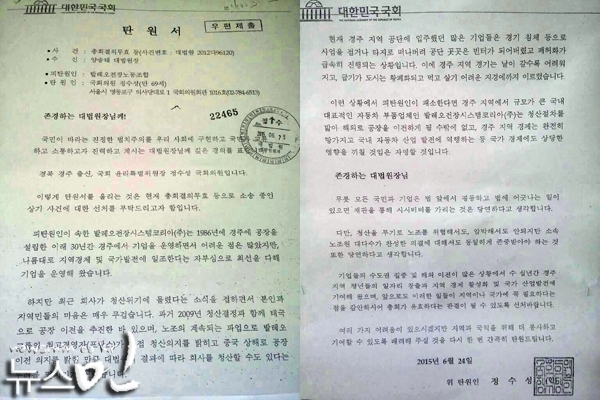 대한민국국회
탄 원 서
우편제출
사 건 : 총회결의무효 등(사건번호 : 대법원 2012다96120)
주 심 : 양승태 대법원장
피탄원인 : 발레오전장노동조합
탄 원 인 : 국회의원 정수성(만 69세)
서울시 영등포구 의사당대로 1 국회의원회관
존경하는 대법원장님께!
22465
국민이 바라는 진정한 법치주의를 우리 사회에 구현하고 국민과
하고 소통하고자 진력하고 계시는 대법원장님께 깊은 경의를
경북 경주 출신, 국회 윤리특별위원장 정수성 국회의원입니다.
이렇게 탄원서를 올리는 것은 현재 총회결의무효 등으로 소송 중인
상기 사건에 대한 선처를 부탁드리고자 함입니다.
피탄원인이 속한 발레오전장시스템코리아(주)는 1986년에 경주에 공장을
설립한 이래 30년간 경주에서 기업을 운영하면서 어려운 점은 많았지만,
나름대로 지역경제 및 국가발전에 일조한다는 자부심으로 최선을 다해
기업을 운영해 왔습니다.
하지만 최근 회사가 청산위기에 몰렸다는 소식을 접하면서 본인과
지역민들의 마음은 매우 무겁습니다. 과거 2009년 청산결정과 함께 태국
으로 공장 이전을 추진한 바 있으며, 노조의 계속되는 파업으로 발레오
청산의지를 밝히고 중국 상해로 공장
이전 의지를 밝힌 만큼 대법원 결과에 따라 회사를 청산할 수도 있다는
뉴스민
대한민국국회
현재 경주 지역 공단에 입주했던 많은 기업들은 경기 침체 등으로
사업을 접거나 타지로 떠나버려 공단 곳곳은 빈터가 되어버렸고 폐허화가
급속히 진행되는 상황입니다. 이에 경주 지역 경기는 날이 갈수록 어려워
지고, 급기야 도시는 황폐화되고 먹고 살기 어려운 지경에까지 이르렀습니다.
이런 상황에서 피탄원인이 패소한다면 경주 지역에서 규모가 큰 국내
대표적인 자동차 부품업체인 발레오전장시스템코리아(주)는 청산절차를
밟아 해외로 공장을 이전하게 될 수밖에 없고, 경주 지역 경제는 완전히
망가지고 국내 자동차 산업 발전에 역행하는 등 국가 경제에도 상당한
영향을 끼칠 것임은 자명할 것입니다.
존경하는 대법원장님
무릇 모든 국민과 기업은 법 앞에서 평등하고 법에 어긋나는 일이
있으면 재판을 통해 시시비비를 가리는 것은 당연하다고 생각합니다.
다만, 청산을 무기로 노조를 위협해서도, 압박해서도 안되지만 소속
노조원 대다수가 찬성한 의결에 대해서도 동일하게 존중받아야 하는 것
또한 당연하다고 생각합니다.
기업들의 수도권 집중 및 해외 이전이 많은 상황에서 수 십년간 경주
지역 청년들의 일자리 창출과 지역 경제 활성화 및 국가 산업발전에
기여해 왔으며, 앞으로도 이러한 일들이 지역이나 국가에 꼭 필요하다는
점을 감안하시어 총회가 유효하다는 판결이 될 수 있도록 선처바랍니다.
여러 가지 어려움이 있으시겠지만 지역과 국익을 위해 더 봉사하고
기여할 수 있도록 배려해 주실 것을 다시 한 번 간곡히 탄원드립니다.
2015년 6월 24일
위 탄원인 정 수 성